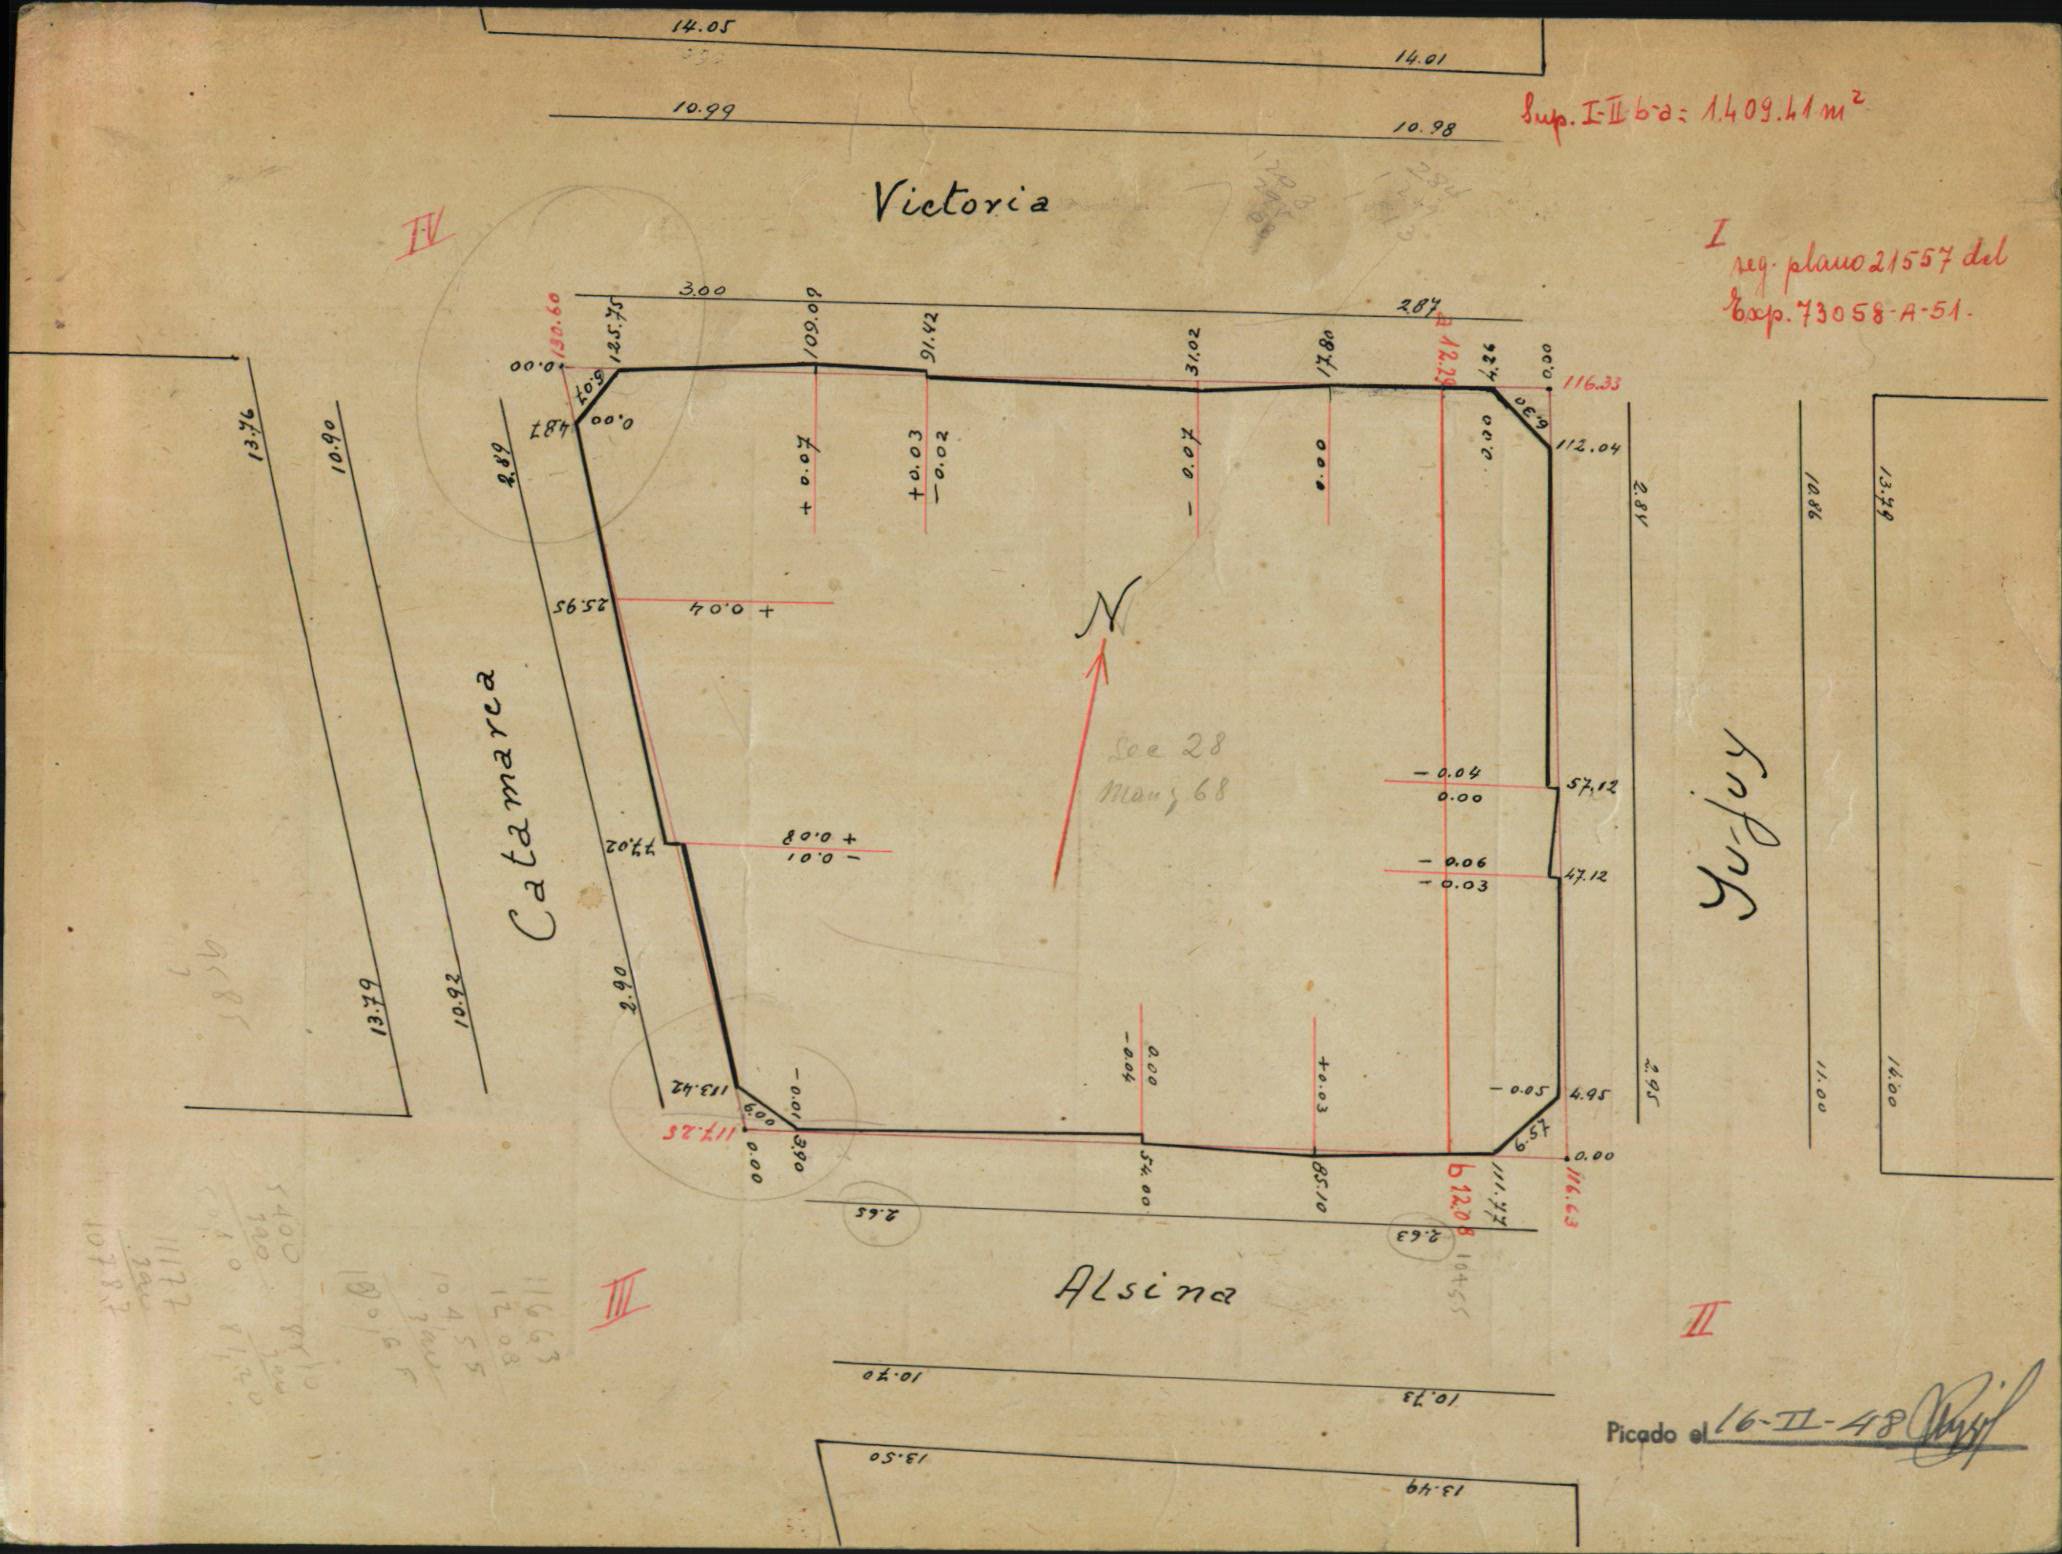 14.05
14.01
10.99
10.98
Sup. I-II b-a = 1.409.41 m²
Victoria
IV
I
seg. plano 21557 del
Exp. 73058-A-51.
3.00
2.87
130.60
125.75
109.09
91.42
31.02
17.80
a 12.29
4.26
0.00
0.00
116.33
5.07
6.30
4.87
0.00
0.00
112.04
+ 0.07
+ 0.03
- 0.02
- 0.07
0.00
13.76
10.90
2.89
2.84
10.86
13.79
25.95
+ 0.04
N
Catamarca
Sec 28
Manz 68
Yujuy
- 0.04
0.00
57.12
77.02
+ 0.08
- 0.01
- 0.06
- 0.03
47.12
13.79
10.92
2.90
- 0.04
0.00
+0.03
113.42
- 0.01
6.00
- 0.05
4.95
2.95
11.00
14.00
117.25
0.00
3.90
54.00
85.10
b 12.08
111.77
6.57
0.00
116.63
2.65
2.63
104.55
Alsina
III
II
11177
116 63
12 08
104 55
10.70
10.73
13.50
13.49
Picado el 16-II-48